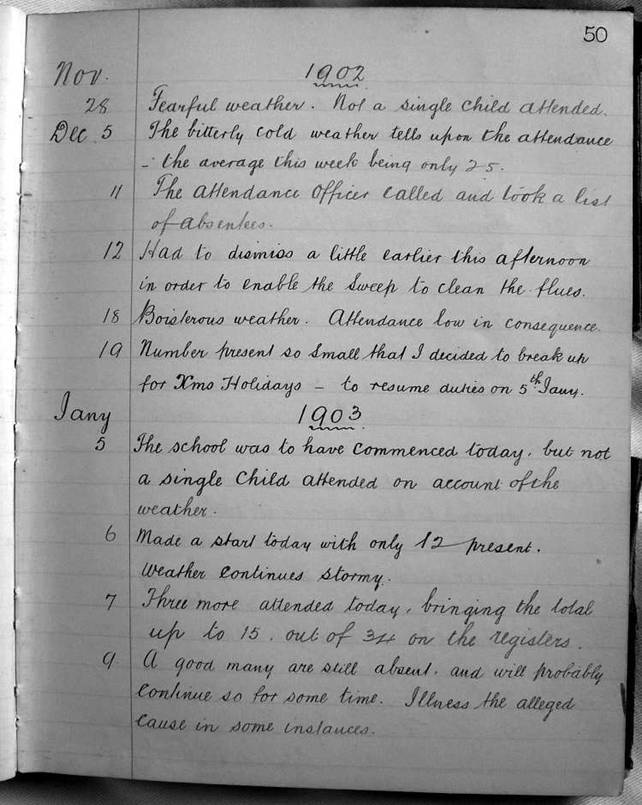 50
Nov. 1902
28 Fearful weather. Not a single child attended.
Dec 5 The bitterly cold weather tells upon the attendance
- the average this week being only 25.
11 The Attendance Officer called and took a list
of absentees.
12 Had to dismiss a little earlier this afternoon
in order to enable the Sweep to clean the flues.
18 Boisterous weather. Attendance low in consequence.
19 Number present so small that I decided to break up
for Xmas Holidays - to resume duties on 5th Jany.
Jany 1903
5 The school was to have commenced today, but not
a single child attended on account of the
weather.
6 Made a start today with only 12 present.
Weather continues stormy.
7 Three more attended today, bringing the total
up to 15, out of 34 on the registers.
9 A good many are still absent, and will probably
continue so for some time. Illness the alleged
cause in some instances.